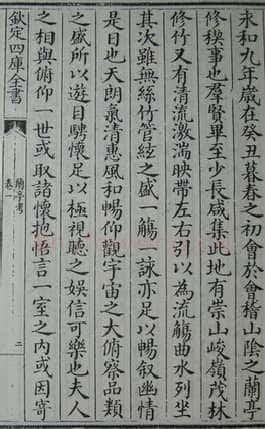 永和九年歲在癸丑暮春之初會於會稽山陰之蘭亭
修稧事也羣賢畢至少長咸集此地有崇山峻嶺茂林
修竹又有清流激湍映帶左右引以為流觴曲水列坐
其次雖無絲竹管絃之盛一觴一詠亦足以暢叙幽情
是日也天朗氣清惠風和暢仰觀宇宙之大俯察品類
之盛所以遊目騁懷足以極視聽之娛信可樂也夫人
之相與俯仰一世或取諸懷抱悟言一室之內或因寄
欽定四庫全書
蘭亭考
卷一
二